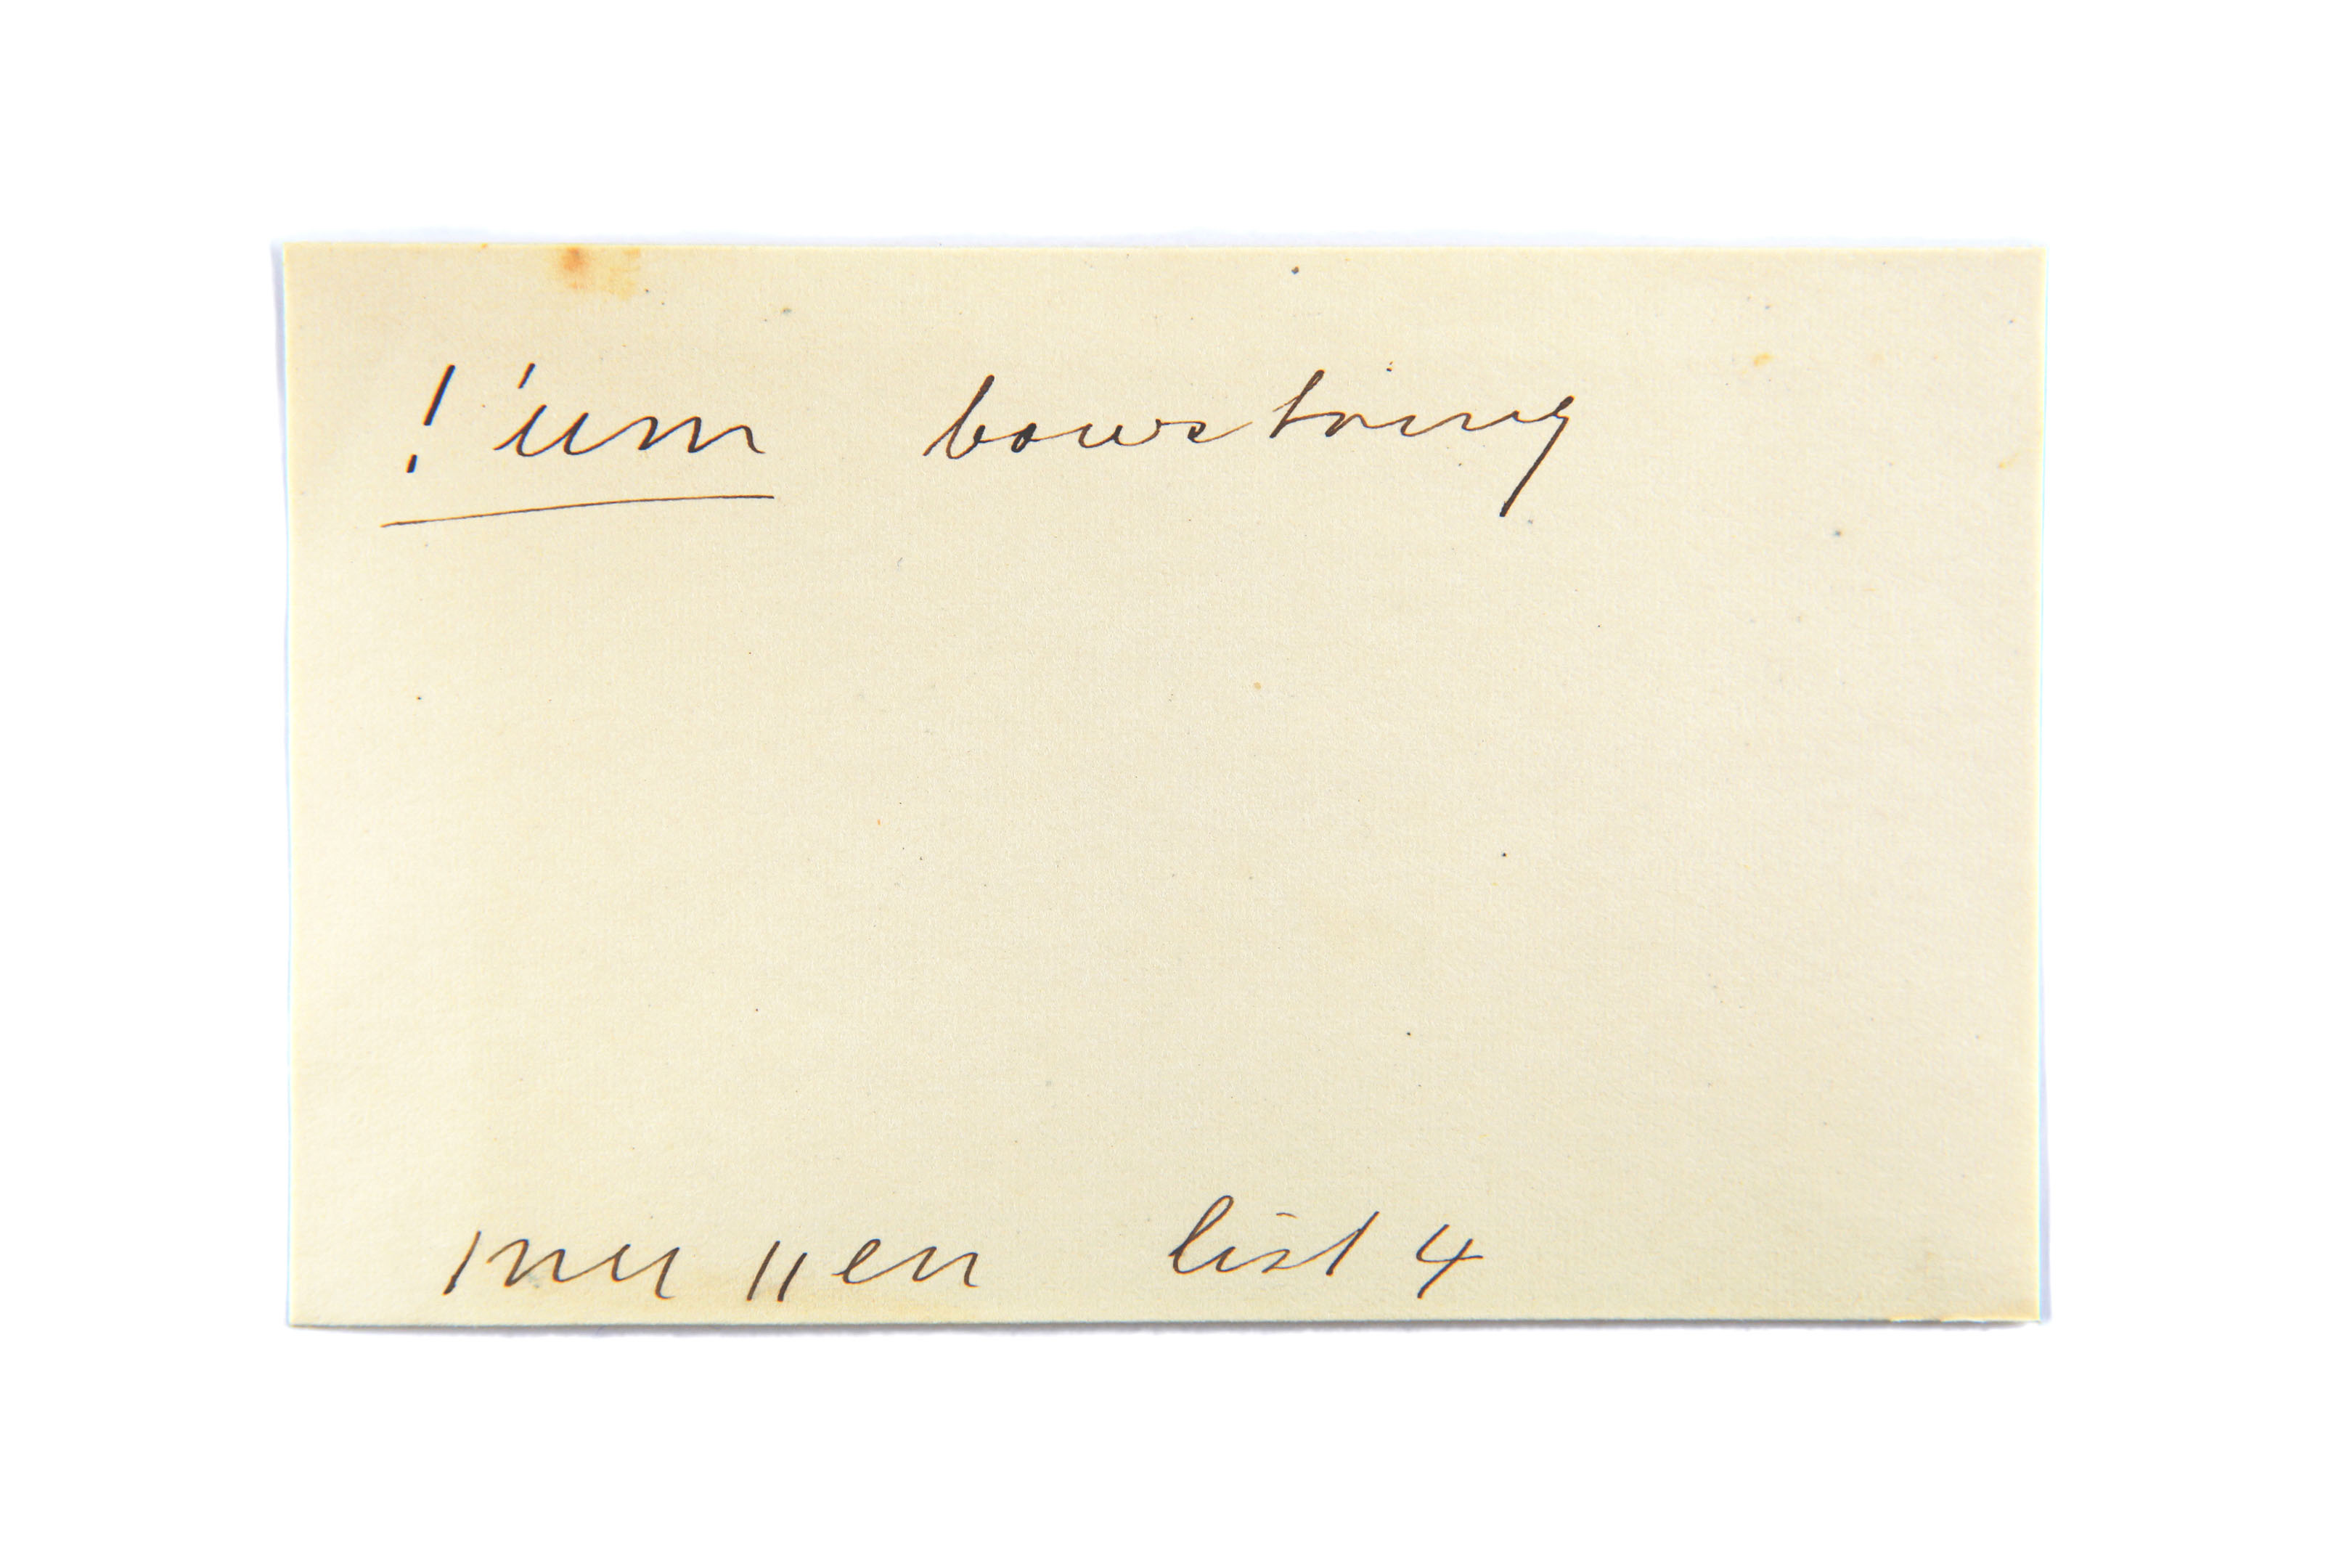 !'um bowstring
|nu ||en list 4